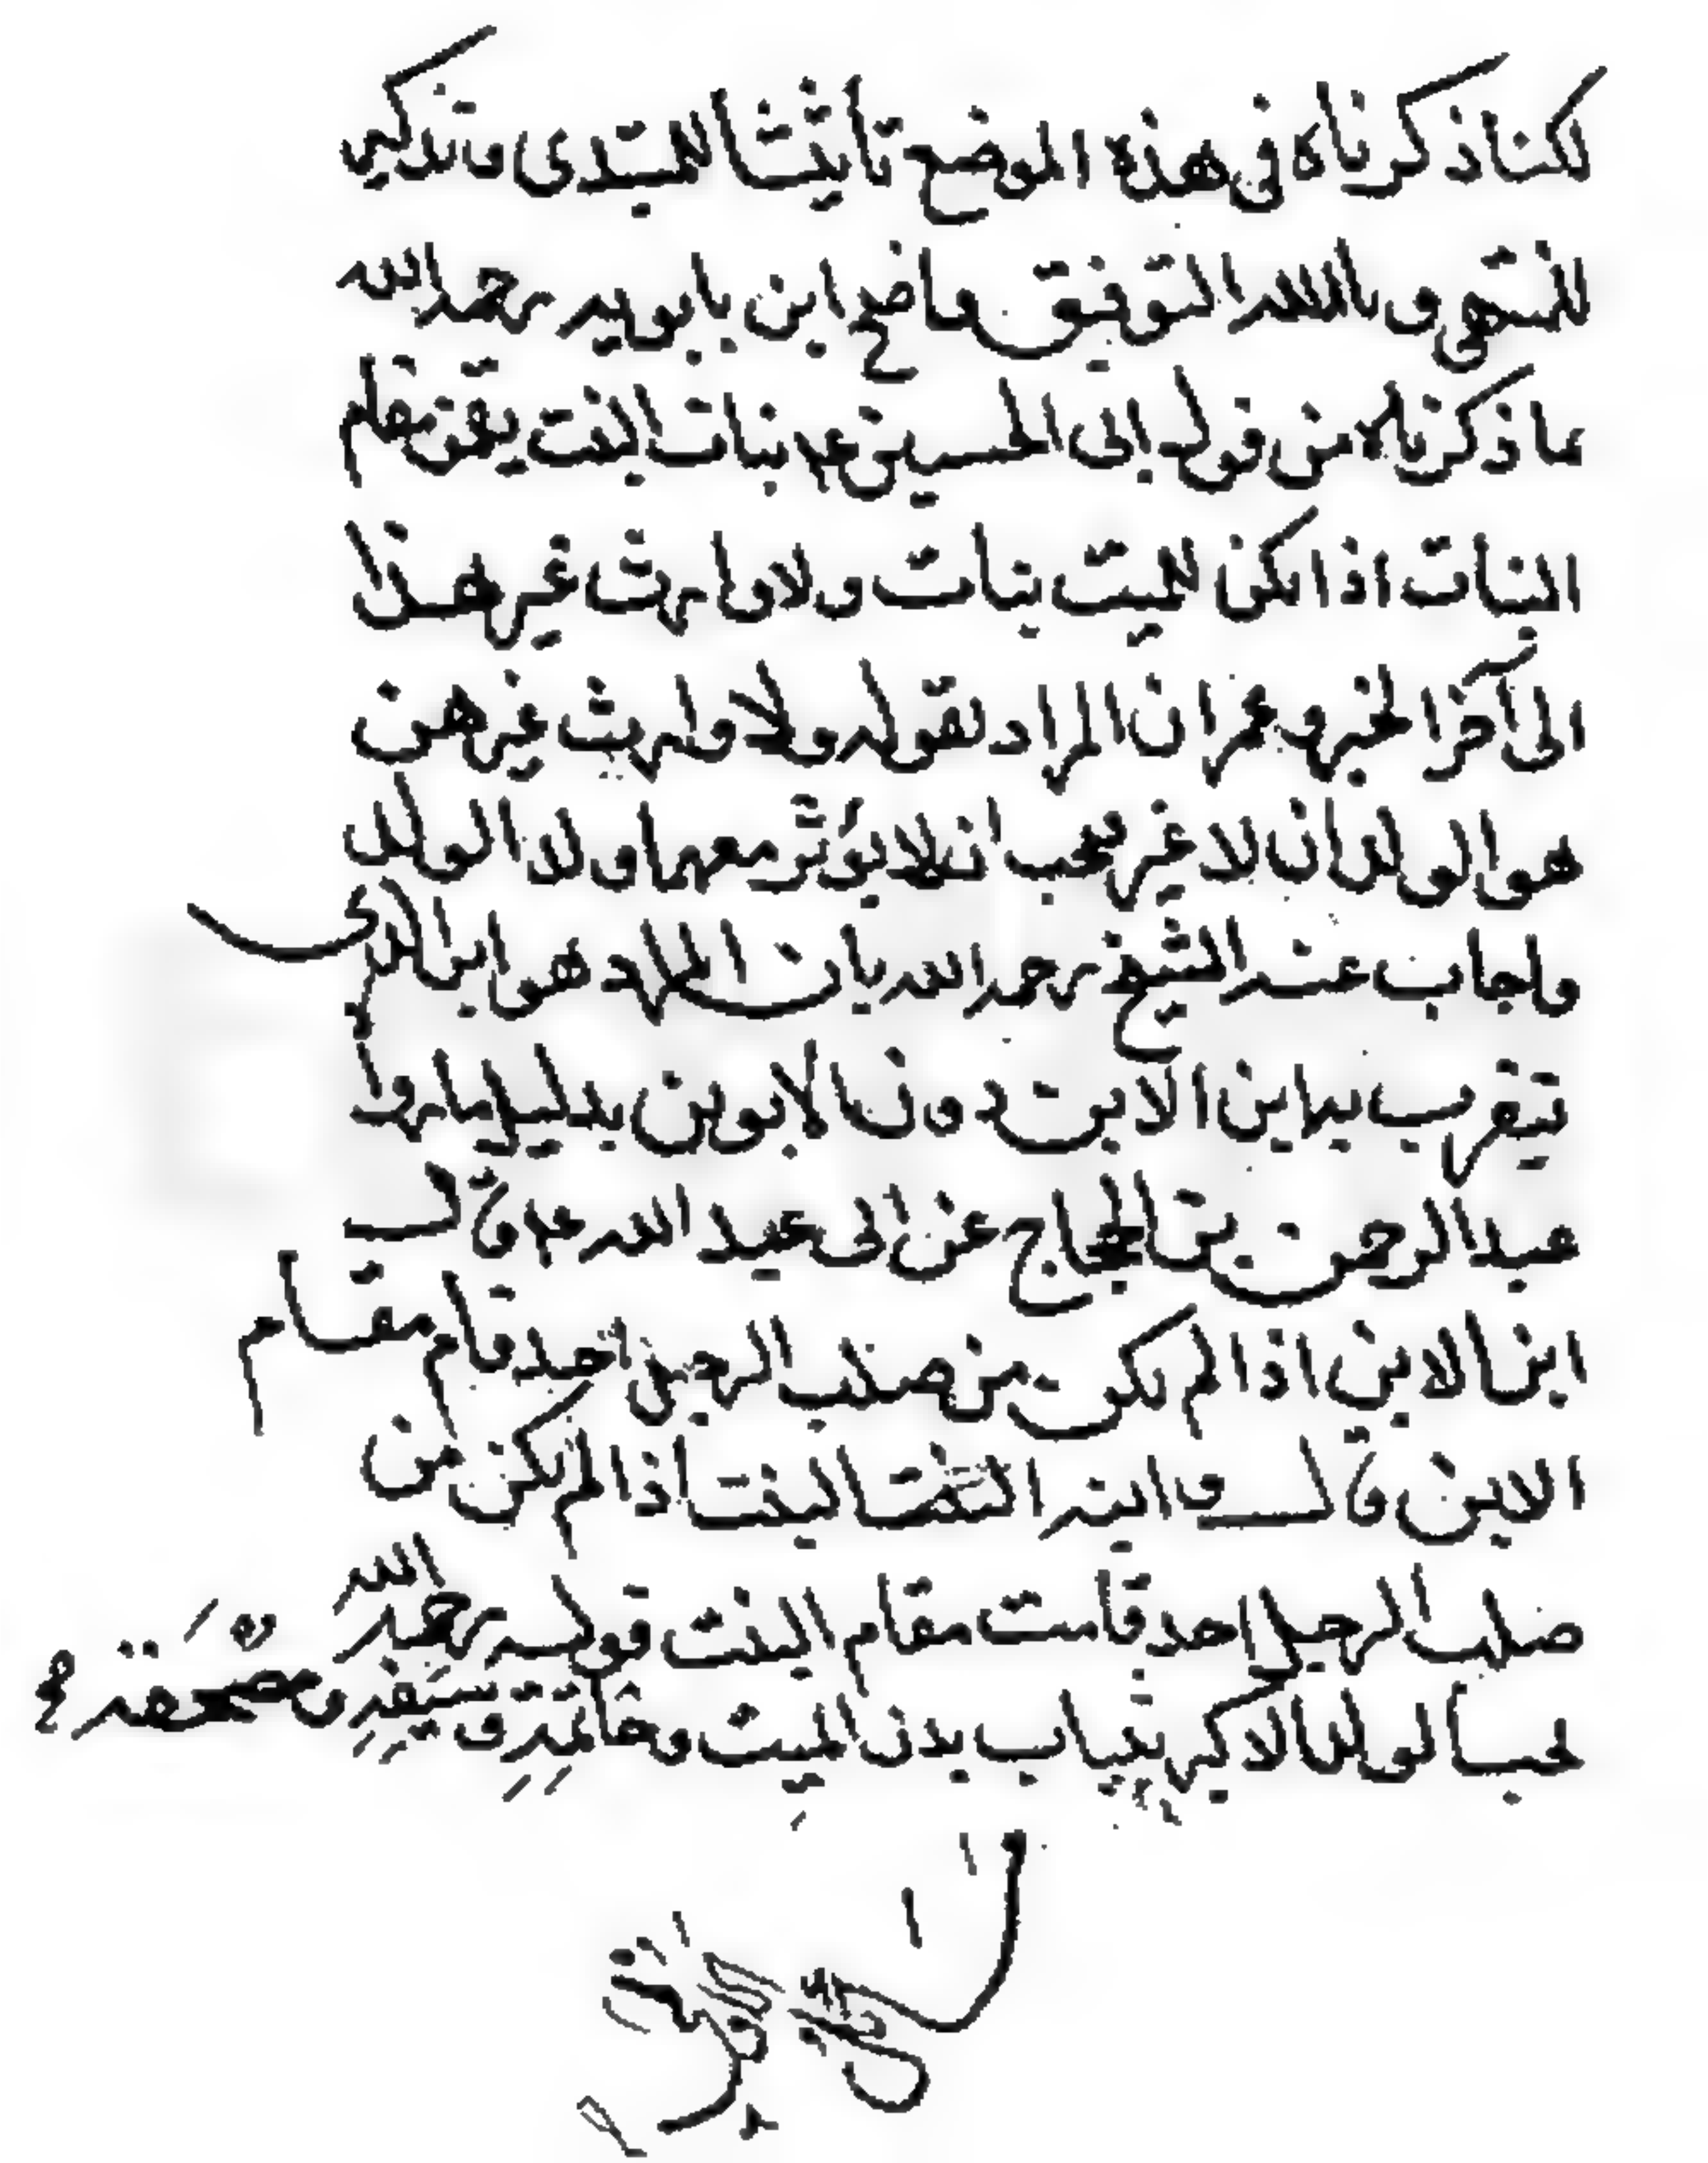 لكنا ذكرناه فى هذه الموضع تأنيثا للمبتدى وتذكير
للمنتهى وبالله التوفيق واحتج ابن بابويه رحمه الله
بما ذكرناه من قول ابى الحسين عم بنات البنت يقمن مقام
البنات اذا لم يكن للميت بنات ولا وارث غيرهن
الى آخر الخبر وعم ان المراد بقوله ولا وارث غيرهن
هو الولدان لا غير فيجب ان لا يؤثر معهما ولد الولد
واجاب عنه الشيخ رحمه الله بان المراد هو ابن الذى
يتقرب به ابن الابن دون الابوين بدليل ما رواه
عبد الرحمن بن الحجاج عن ابى عبد الله عم قال
ابن الابن اذا لم يكن من صلب الرجل احد قام مقام
الابن قال وابنه البنت اذا لم يكن من
صلب الرجل احد قامت مقام البنت قوله رحمه الله
يحب الولد الاكبر بثياب بدن الميت وخاتمه وسيفه ومصحفه